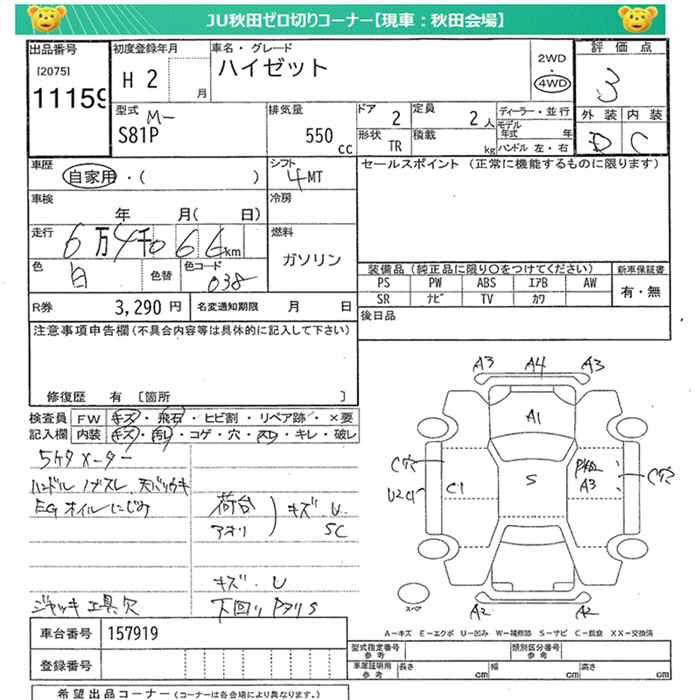 JU秋田ゼロ切りコーナー【現車：秋田会場】
出品番号 初度登録年月 車名・グレード 評価点
[2075] H 2 月 ハイゼット 2WD・4WD 3
11159
型式 M- 排気量 ドア 2 定員 2人 ディーラー・並行 外装 内装
S81P 550 cc 形状 TR 積載 kg モデル年式 年 D C
ハンドル 左・右
車歴 自家用・( ) シフト 4MT セールスポイント (正常に機能するものに限ります)
車検 年 月( 日) 冷房
走行 6万4千066km 燃料
ガソリン
色 白 色替 色コード 038
装備品(純正品に限り○をつけてください) 新車保証書
PS PW ABS エアB AW 有・無
SR ナビ TV カワ
R券 3,290 円 名変通知期限 月 日 後日品
注意事項申告欄(不具合内容等は具体的に記入して下さい)
修復歴 有 [箇所 ]
検査員 FW キズ・飛石・ヒビ割・リペア跡・×要
記入欄 内装 キズ・汚れ・コゲ・穴・スレ・キレ・破レ
5ケタメーター
ハンドル ノブスレ 天バリウキ
EGオイルにじみ 荷台 キズ U
アオリ SC
キズ U
ジャッキ 工具欠 下回り Pアリ S
A3 A4 A3
A1
C穴 P A3 C穴
U2C1 C1 S
A2 A2
スペア
A－キズ E－エクボ U－凹み W－補修跡 S－サビ C－腐食 XX－交換済
車台番号 157919
登録番号
型式指定番号 参考 類別区分番号 参考
車庫証明用 参考 長さ cm 幅 cm 高さ cm
希望出品コーナー (コーナーは各会場により異なります。)